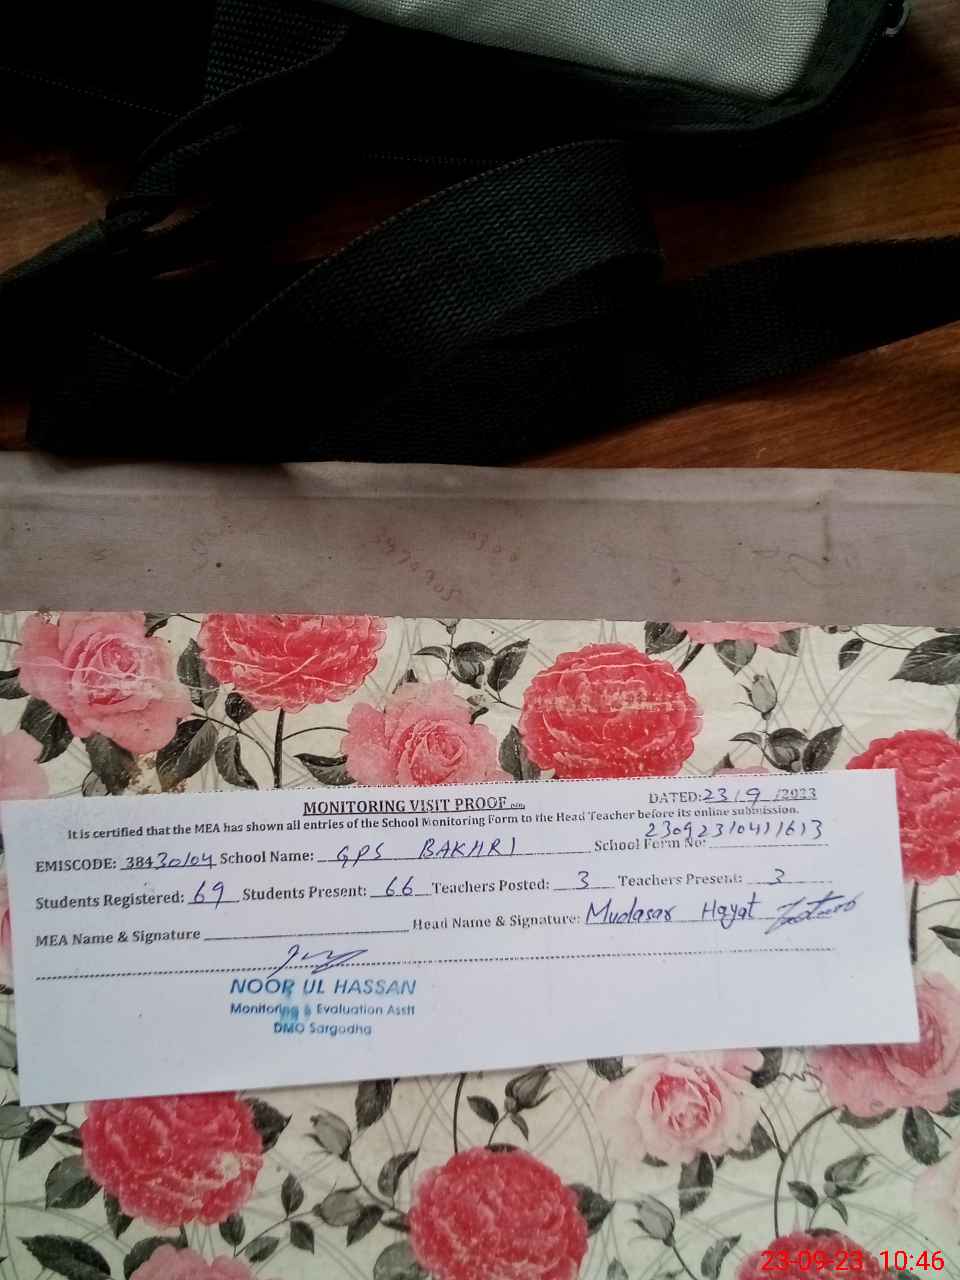 MONITORING VISIT PROOF
DATED: 23/9/2023
It is certified that the MEA has shown all entries of the School Monitoring Form to the Head Teacher before its online submission.
EMISCODE: 38430104 School Name: GPS BAKHRI School Form No: 23092310411613
Students Registered: 69 Students Present: 66 Teachers Posted: 3 Teachers Present: 3
MEA Name & Signature Head Name & Signature: Mudasar Hayat
NOOR UL HASSAN
Monitoring & Evaluation Asstt
DMO Sargodha
23-09-23 10:46